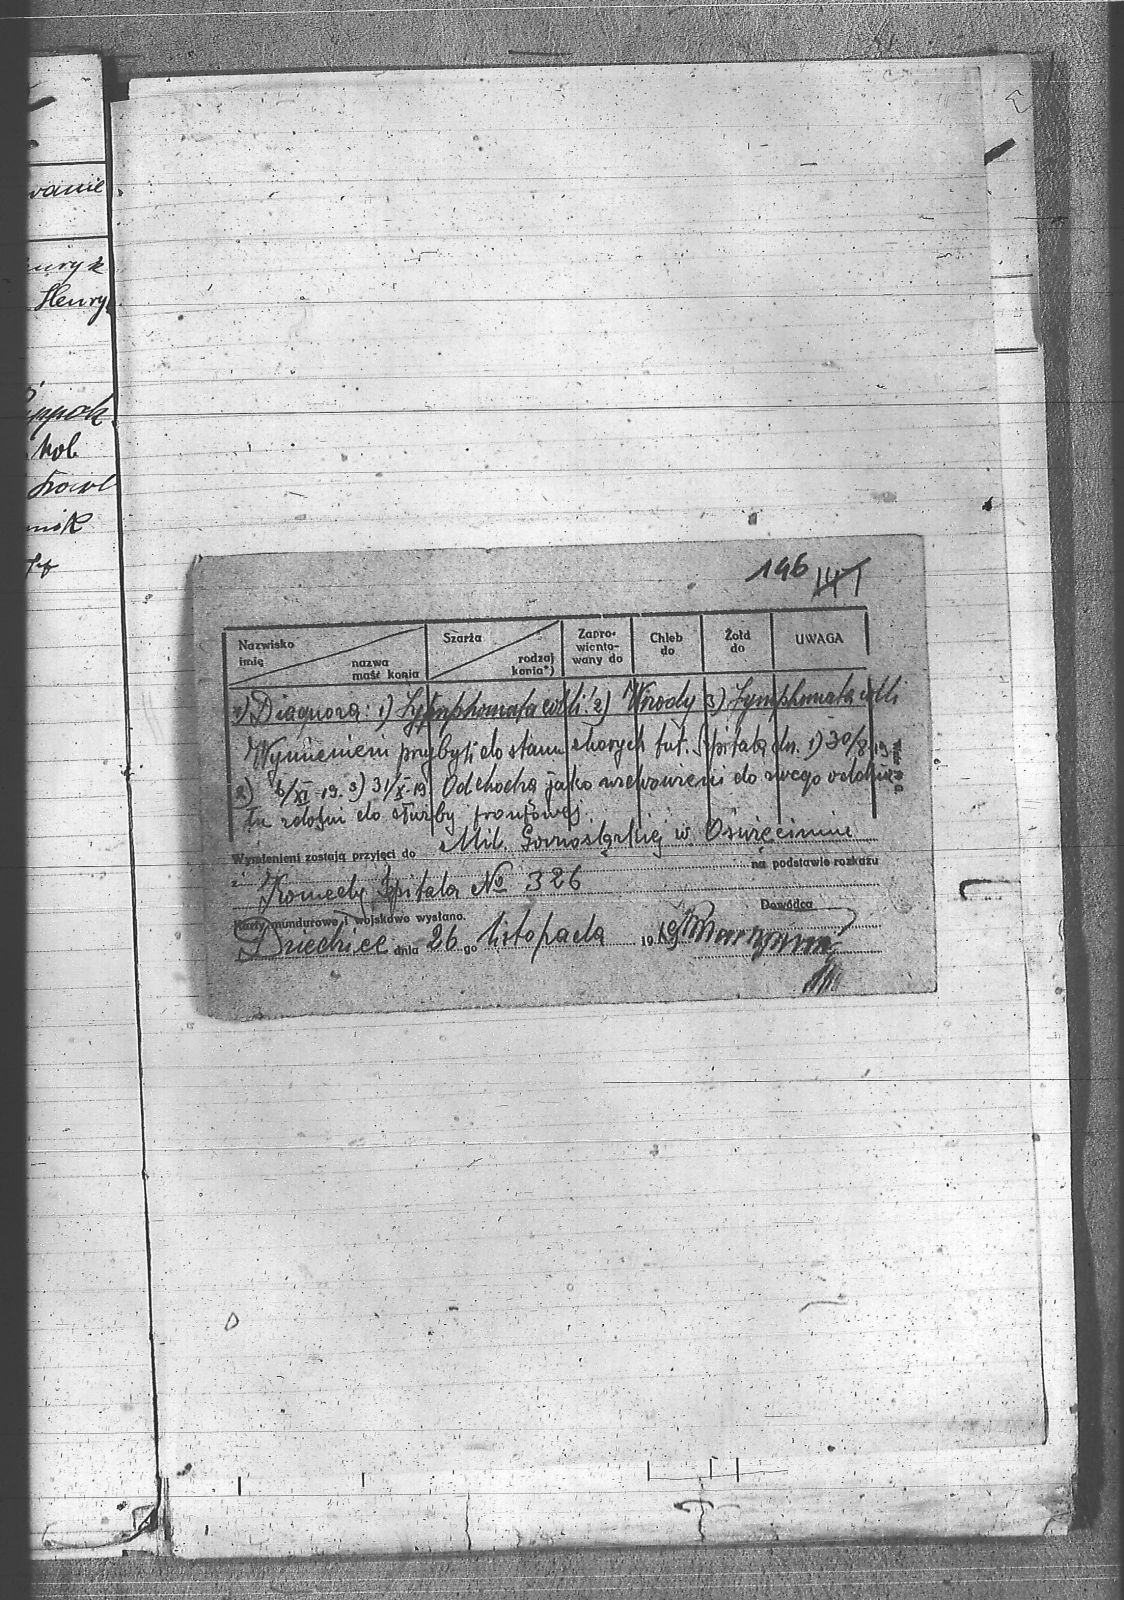 wanie
Henry
kob
146 147
Nazwisko
imię
nazwa
maść konia
Szarża
rodzaj
konia*)
Zapro-
wianto-
wany do
Chleb
do
Żołd
do
UWAGA
1) Diagnoza: 1) Lymphomata colli 2) Wrzody 3) Lymphomata colli
Wymienieni przybyli do stanu chorych tut. Szpitala dn. 1) 30/8 19
2) 6/XI 19. 3) 31/X 19 Odchodzą jako do swego oddzia
łu zdolni do służby frontowej.
Wymienieni zostają przyjęci do Mil. Górnośląskiej w Oświęcimiu
z Komendy Szpitala No 326 na podstawie rozkazu
Karty mundurowe i wojskowo wysłano. Dowódca
Dziedzice dnia 26 go listopada 1919